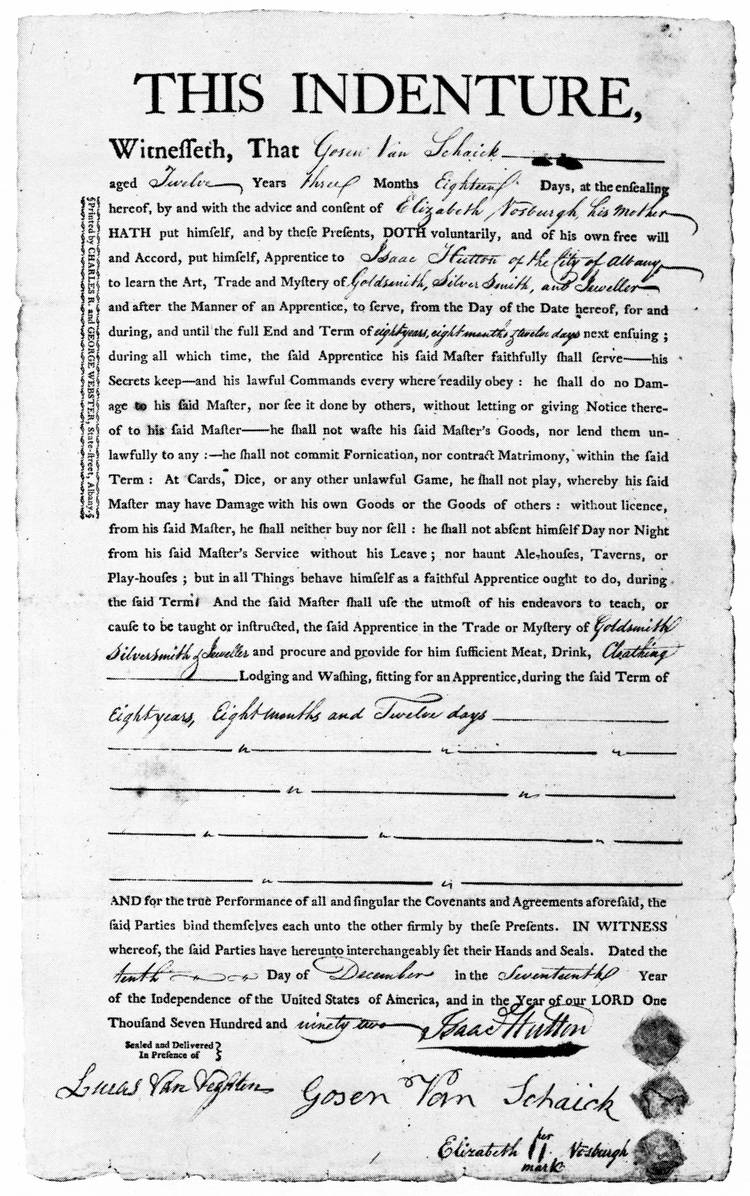 THIS INDENTURE,
Witneſſeth, That Gosen Van Schaick
aged Twelve Years three Months Eighteen Days, at the enſealing
hereof, by and with the advice and conſent of Elizabeth Vosburgh, his mother
HATH put himſelf, and by theſe Preſents, DOTH voluntarily, and of his own free will
and Accord, put himſelf, Apprentice to Isaac Hutton of the City of Albany
to learn the Art, Trade and Myſtery of Goldsmith, Silver Smith, and Jeweller
and after the Manner of an Apprentice, to ſerve, from the Day of the Date hereof, for and
during, and until the full End and Term of eight years, eight months & twelve days next enſuing ;
during all which time, the ſaid Apprentice his ſaid Maſter faithfully ſhall ſerve—his
Secrets keep—and his lawful Commands every where readily obey : he ſhall do no Dam-
age to his ſaid Maſter, nor ſee it done by others, without letting or giving Notice there-
of to his ſaid Maſter—he ſhall not waſte his ſaid Maſter's Goods, nor lend them un-
lawfully to any :—he ſhall not commit Fornication, nor contract Matrimony, within the ſaid
Term : At Cards, Dice, or any other unlawful Game, he ſhall not play, whereby his ſaid
Maſter may have Damage with his own Goods or the Goods of others : without licence,
from his ſaid Maſter, he ſhall neither buy nor ſell : he ſhall not abſent himſelf Day nor Night
from his ſaid Maſter's Service without his Leave ; nor haunt Ale-houſes, Taverns, or
Play-houſes ; but in all Things behave himſelf as a faithful Apprentice ought to do, during
the ſaid Term And the ſaid Maſter ſhall uſe the utmoſt of his endeavors to teach, or
cauſe to be taught or inſtructed, the ſaid Apprentice in the Trade or Myſtery of Goldsmith
Silversmith & Jeweller and procure and provide for him ſufficient Meat, Drink, Cloathing
Lodging and Waſhing, fitting for an Apprentice, during the ſaid Term of
Eight years, Eight months and Twelve days
AND for the true Performance of all and ſingular the Covenants and Agreements aforeſaid, the
ſaid Parties bind themſelves each unto the other firmly by theſe Preſents. IN WITNESS
whereof, the ſaid Parties have hereunto interchangeably ſet their Hands and Seals. Dated the
tenth Day of December in the Seventeenth Year
of the Independence of the United States of America, and in the Year of our LORD One
Thousand Seven Hundred and ninety two Isaac Hutton
Sealed and Delivered
In Preſence of
Lucas Van Veghten Gosen Van Schaick
Elizabeth her mark Vosburgh
Printed by CHARLES R. and GEORGE WEBSTER, State-ſtreet, Albany.